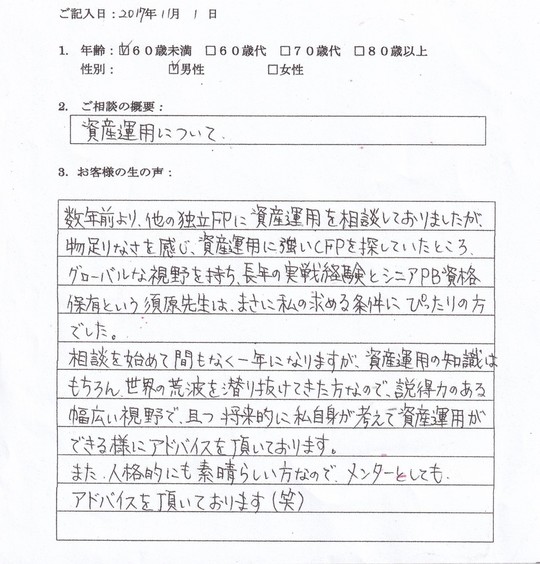 ご記入日：2017年11月 1日
1. 年齢：☑60歳未満 □60歳代 □70歳代 □80歳以上
性別： ☑男性 □女性
2. ご相談の概要：
資産運用について.
3. お客様の生の声：
数年前より、他の独立FPに資産運用を相談しておりましたが、
物足りなさを感じ、資産運用に強いCFPを探していたところ、
グローバルな視野を持ち、長年の実戦経験とシニアPB資格
保有という須原先生は、まさに私の求める条件にぴったりの方
でした。
相談を始めて間もなく一年になりますが、資産運用の知識は
もちろん、世界の荒波を潜り抜けてきた方なので、説得力のある
幅広い視野で、且つ将来的に私自身が考えて資産運用が
できる様にアドバイスを頂いております。
また、人格的にも素晴らしい方なので、メンターとしても、
アドバイスを頂いております(笑)